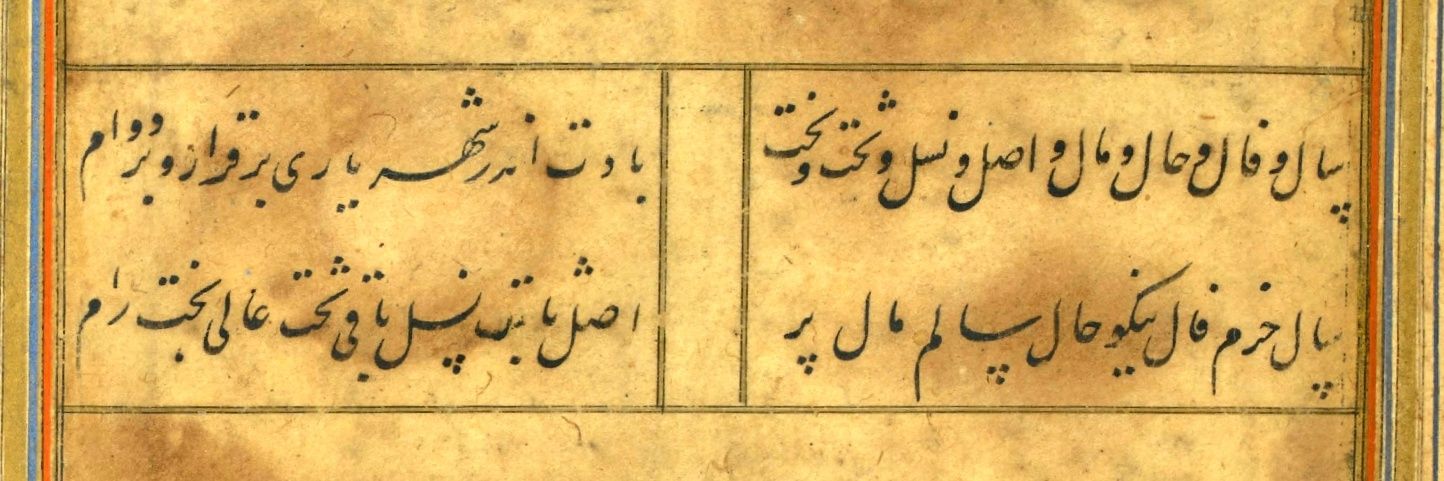 سال و فال و حال و مال و اصل و نسل و تخت و بخت
بادت اندر شهریاری برقرار و بر دوام
سال خرم فال نیکو حال سالم مال پر
اصل ثابت نسل باقی تخت عالی بخت رام